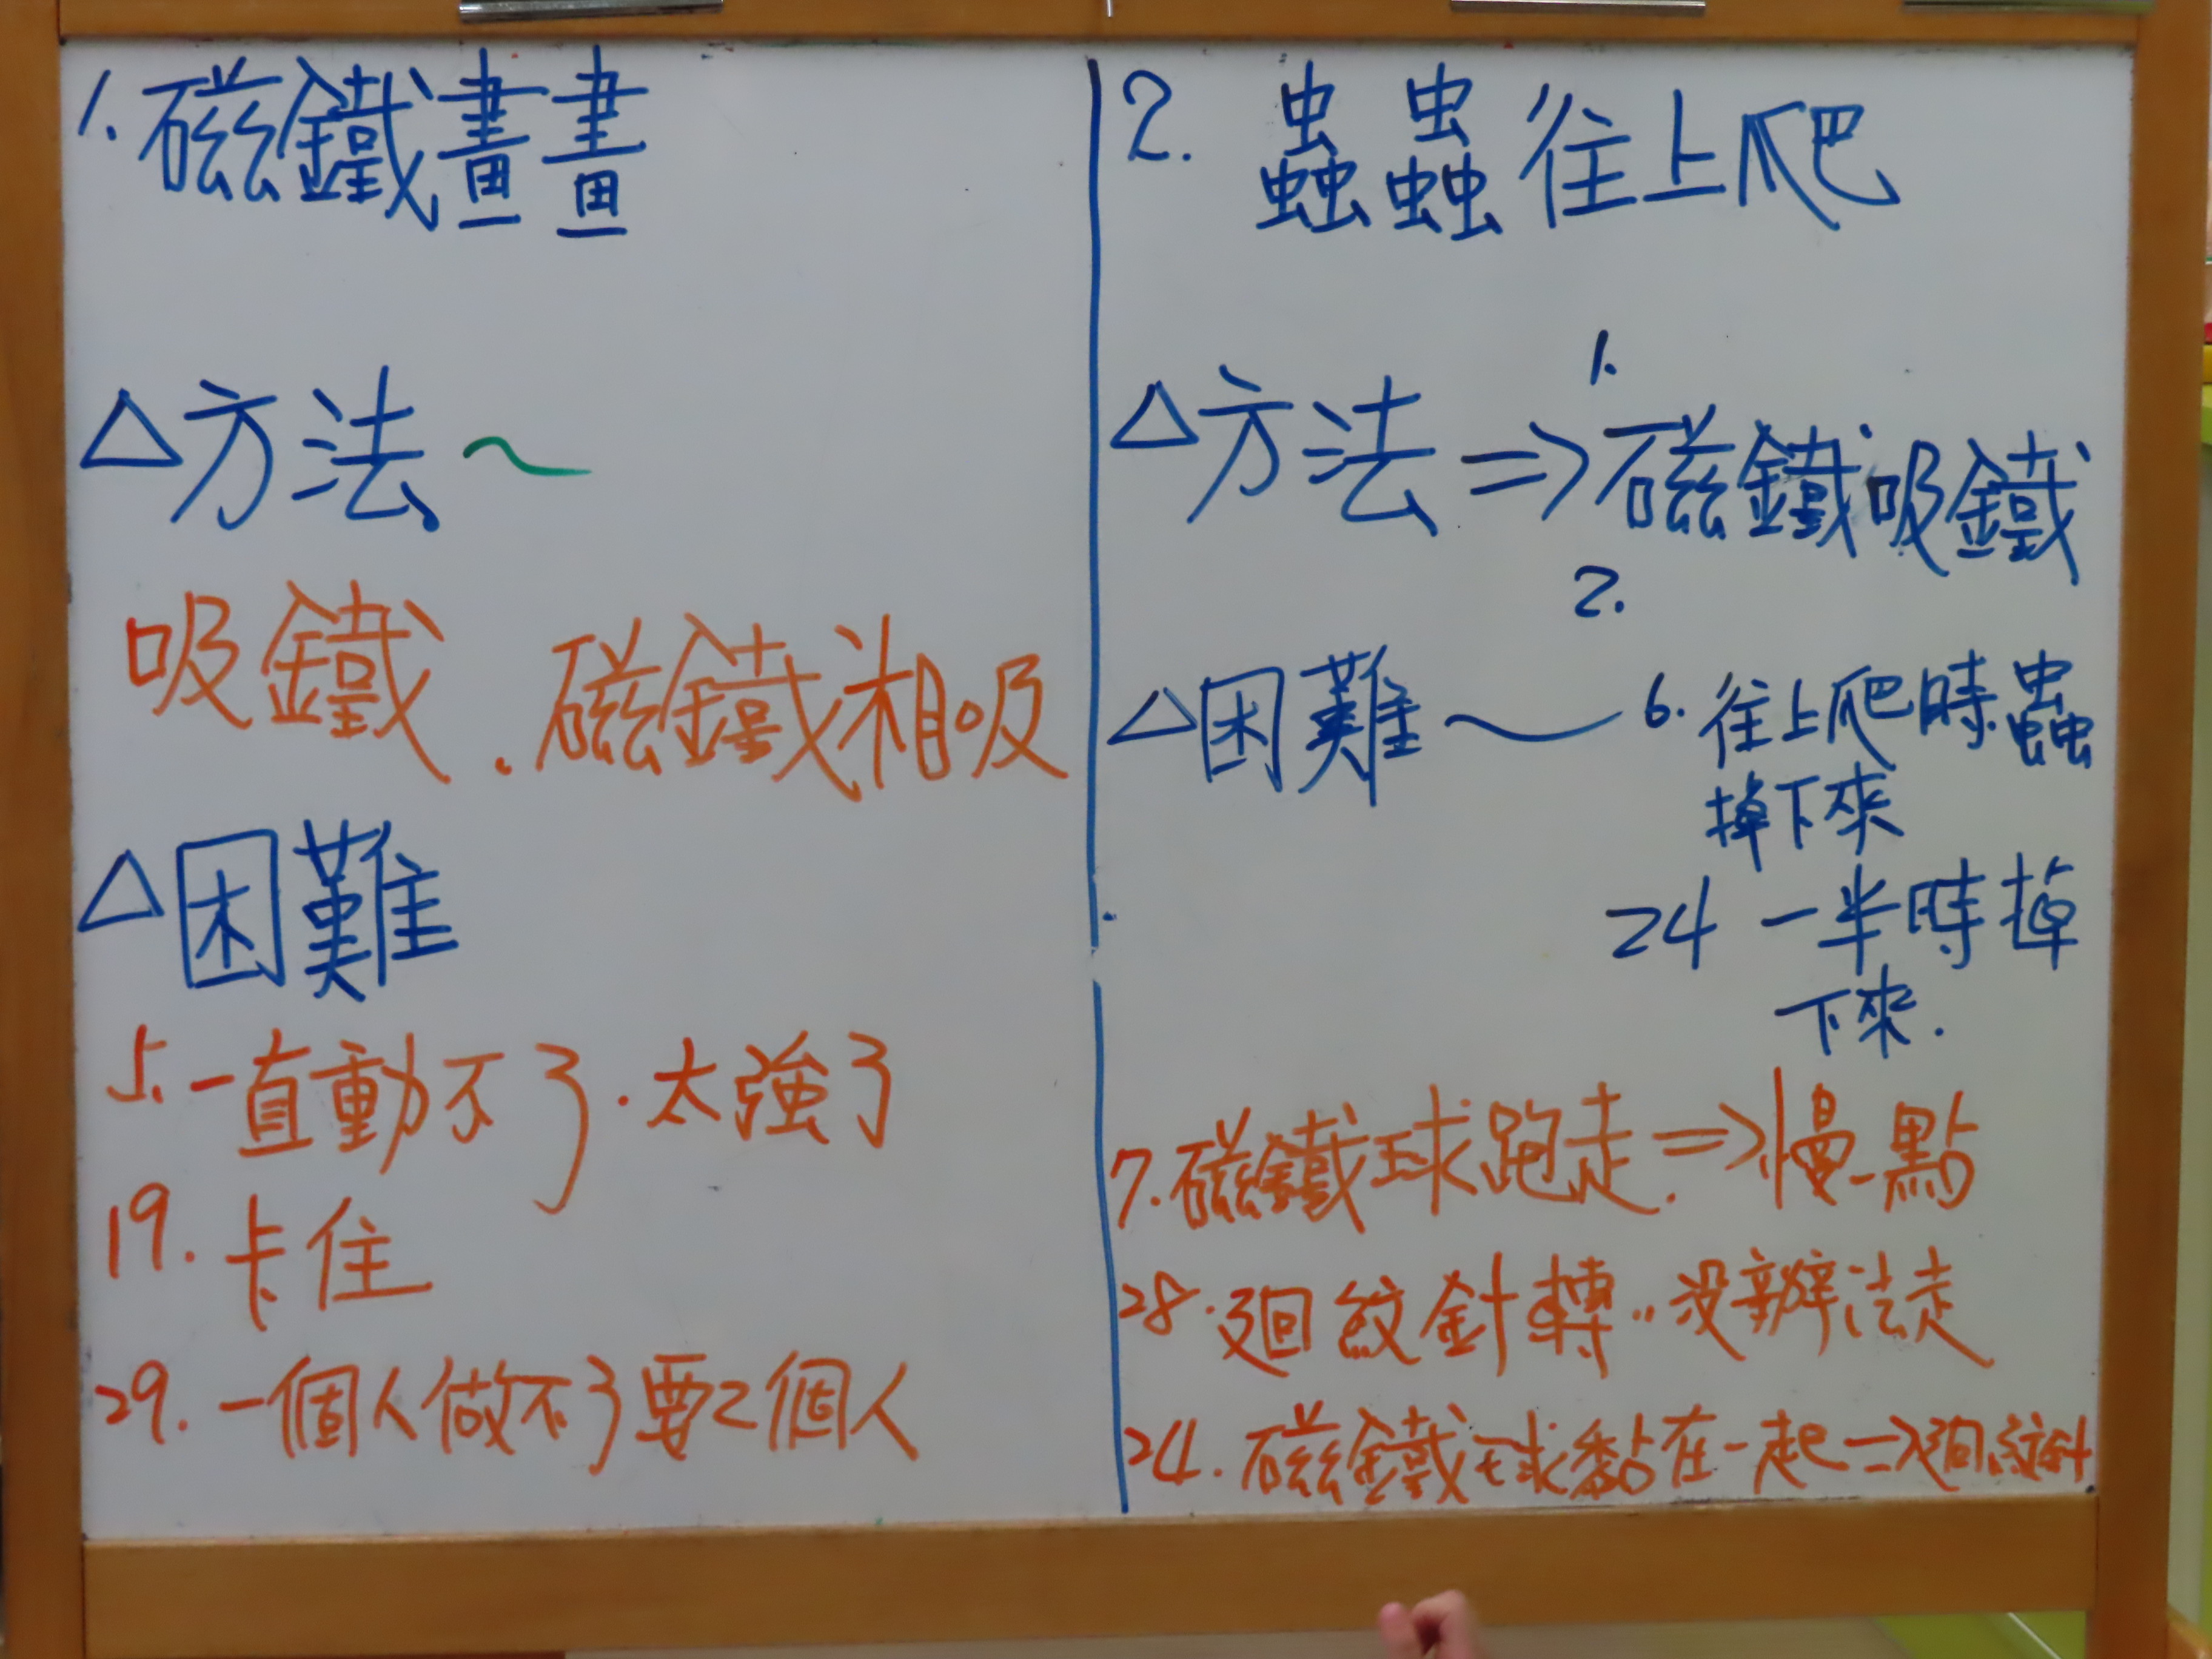 1. 磁鐵畫畫
△方法~
吸鐵.磁鐵相吸
△困難
5.一直動不了.太強了
19.卡住
29.一個人做不了要2個人
2. 蟲蟲往上爬
△方法⇒1.磁鐵吸鐵
2.
△困難~6.往上爬時蟲
掉下來
24 一半時掉
下來.
7.磁鐵球跑走.⇒慢一點
28.迴紋針轉..沒辦法走
24.磁鐵球黏在一起⇒迴紋針